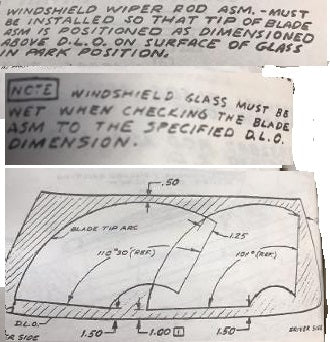 WINDSHIELD WIPER ROD ASM. - MUST
BE INSTALLED SO THAT TIP OF BLADE
ASM IS POSITIONED AS DIMENSIONED
ABOVE D.L.O. ON SURFACE OF GLASS
IN PARK POSITION.
NOTE WINDSHIELD GLASS MUST BE
WET WHEN CHECKING THE BLADE
ASM TO THE SPECIFIED D.L.O.
DIMENSION.
.50
BLADE TIP ARC
1.25
110°30' (REF.)
101° (REF.)
D.L.O.
1.50
1.00
1.50
ER SIDE
DRIVER SIDE